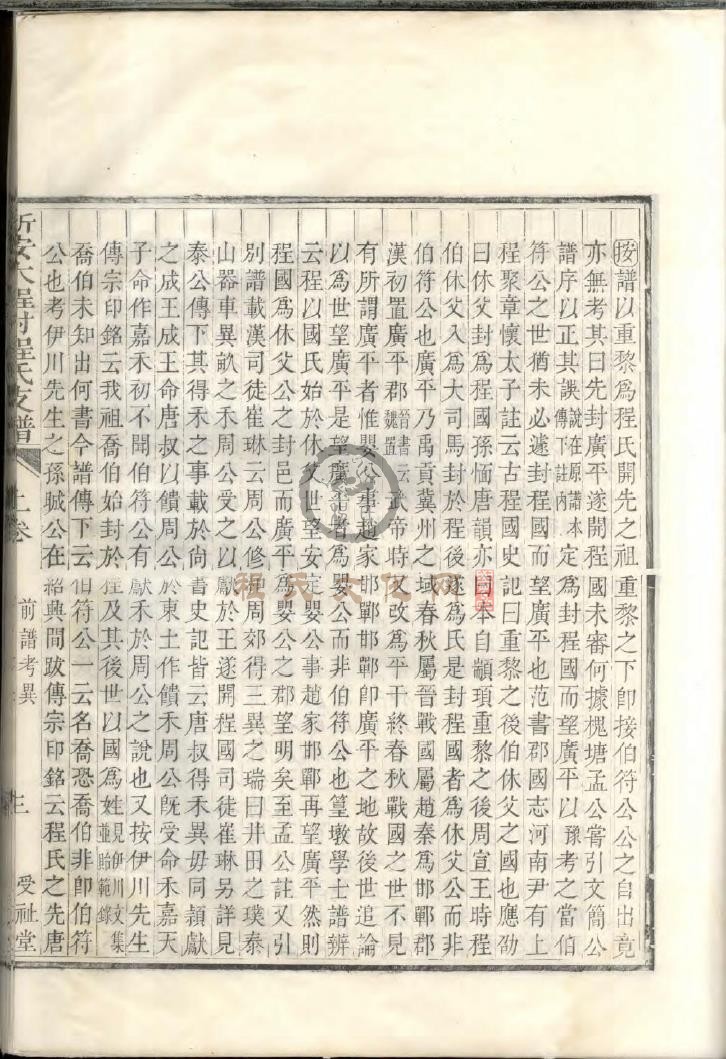 按譜以重黎爲程氏開先之祖重黎之下即接伯符公公之自出竟
亦無考其曰先封廣平遂開程國未審何據槐塘孟公嘗引文簡公
譜序以正其誤說在原譜本傳下註內定爲封程國而望廣平以豫考之當伯
符公之世猶未必遽封程國而望廣平也范書郡國志河南尹有上
程聚章懷太子註云古程國史記曰重黎之後伯休父之國也應劭
曰休父封爲程國孫愐唐韻亦曰本自顓頊重黎之後周宣王時程
伯休父入爲大司馬封於程後爲氏是封程國者爲休父公而非
伯符公也廣平乃禹貢冀州之域春秋屬晉戰國屬趙秦爲邯鄲郡
漢初置廣平郡晉書云魏置武帝時又改爲平干終春秋戰國之世不見
有所謂廣平者惟嬰公事趙家邯鄲邯鄲卽廣平之地故後世追論
以爲世望廣平是望廣平者爲嬰公而非伯符公也篁墩學士譜辨
云程以國氏始於休父世望安定嬰公事趙家邯鄲再望廣平然則
程國爲休父公之封邑而廣平爲嬰公之郡望明矣至孟公註又引
別譜載漢司徒崔琳云周公修周郊得三異之瑞曰井田之璞泰
山器車異畝之禾周公受之以獻於王遂開程國司徒崔琳另詳見
泰公傳下其得禾之事載於尚書史記皆云唐叔得禾異母同穎獻
之成王成王命唐叔以饋周公於東土作饋禾周公旣受命禾嘉天
子命作嘉禾初不聞伯符公有獻禾於周公之說也又按伊川先生
傳宗印銘云我祖喬伯始封於程及其後世以國爲姓見伊川文集並貽範錄
喬伯未知出何書今譜傳下云伯符公一云名喬恐喬伯非卽伯符
公也考伊川先生之孫晟公在紹興間跋傳宗印銘云程氏之先唐
新安大程村程氏支譜 上卷 前譜考異 三 受祉堂
程氏文化网